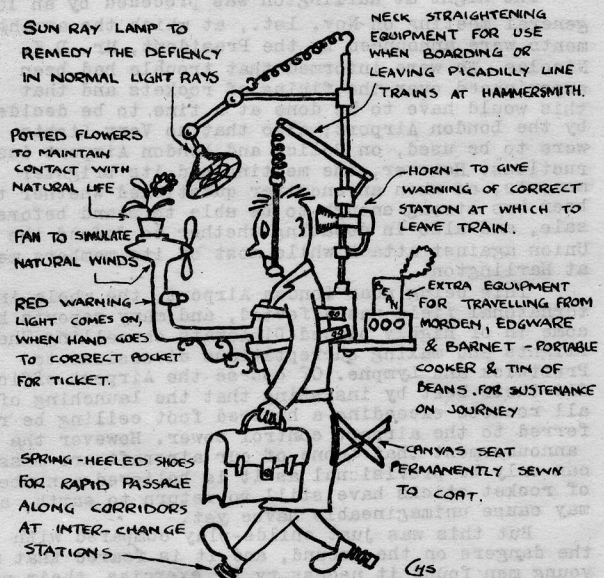 SUN RAY LAMP TO
REMEDY THE DEFIENCY
IN NORMAL LIGHT RAYS
NECK STRAIGHTENING
EQUIPMENT FOR USE
WHEN BOARDING OR
LEAVING PICADILLY LINE
TRAINS AT HAMMERSMITH.
POTTED FLOWERS
TO MAINTAIN
CONTACT WITH
NATURAL LIFE
HORN - TO GIVE
WARNING OF CORRECT
STATION AT WHICH TO
LEAVE TRAIN.
FAN TO SIMULATE
NATURAL WINDS
BEAN
RED WARNING
LIGHT COMES ON,
WHEN HAND GOES
TO CORRECT POCKET
FOR TICKET.
EXTRA EQUIPMENT
FOR TRAVELLING FROM
MORDEN, EDGWARE
& BARNET - PORTABLE
COOKER & TIN OF
BEANS. FOR SUSTENANCE
ON JOURNEY
CANVAS SEAT
PERMANENTLY SEWN
TO COAT.
SPRING-HEELED SHOES
FOR RAPID PASSAGE
ALONG CORRIDORS
AT INTER-CHANGE
STATIONS
CHS